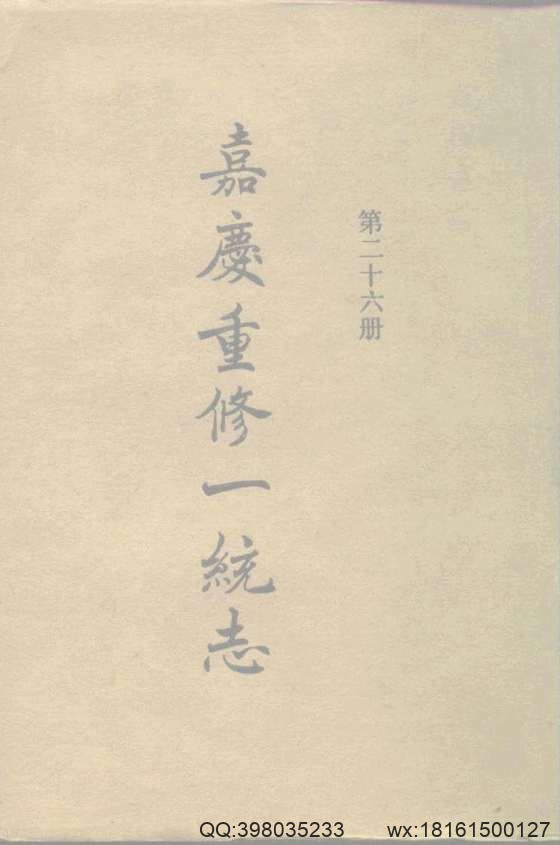 第二十六册
嘉慶重修一統志
QQ:398035233 wx:18161500127